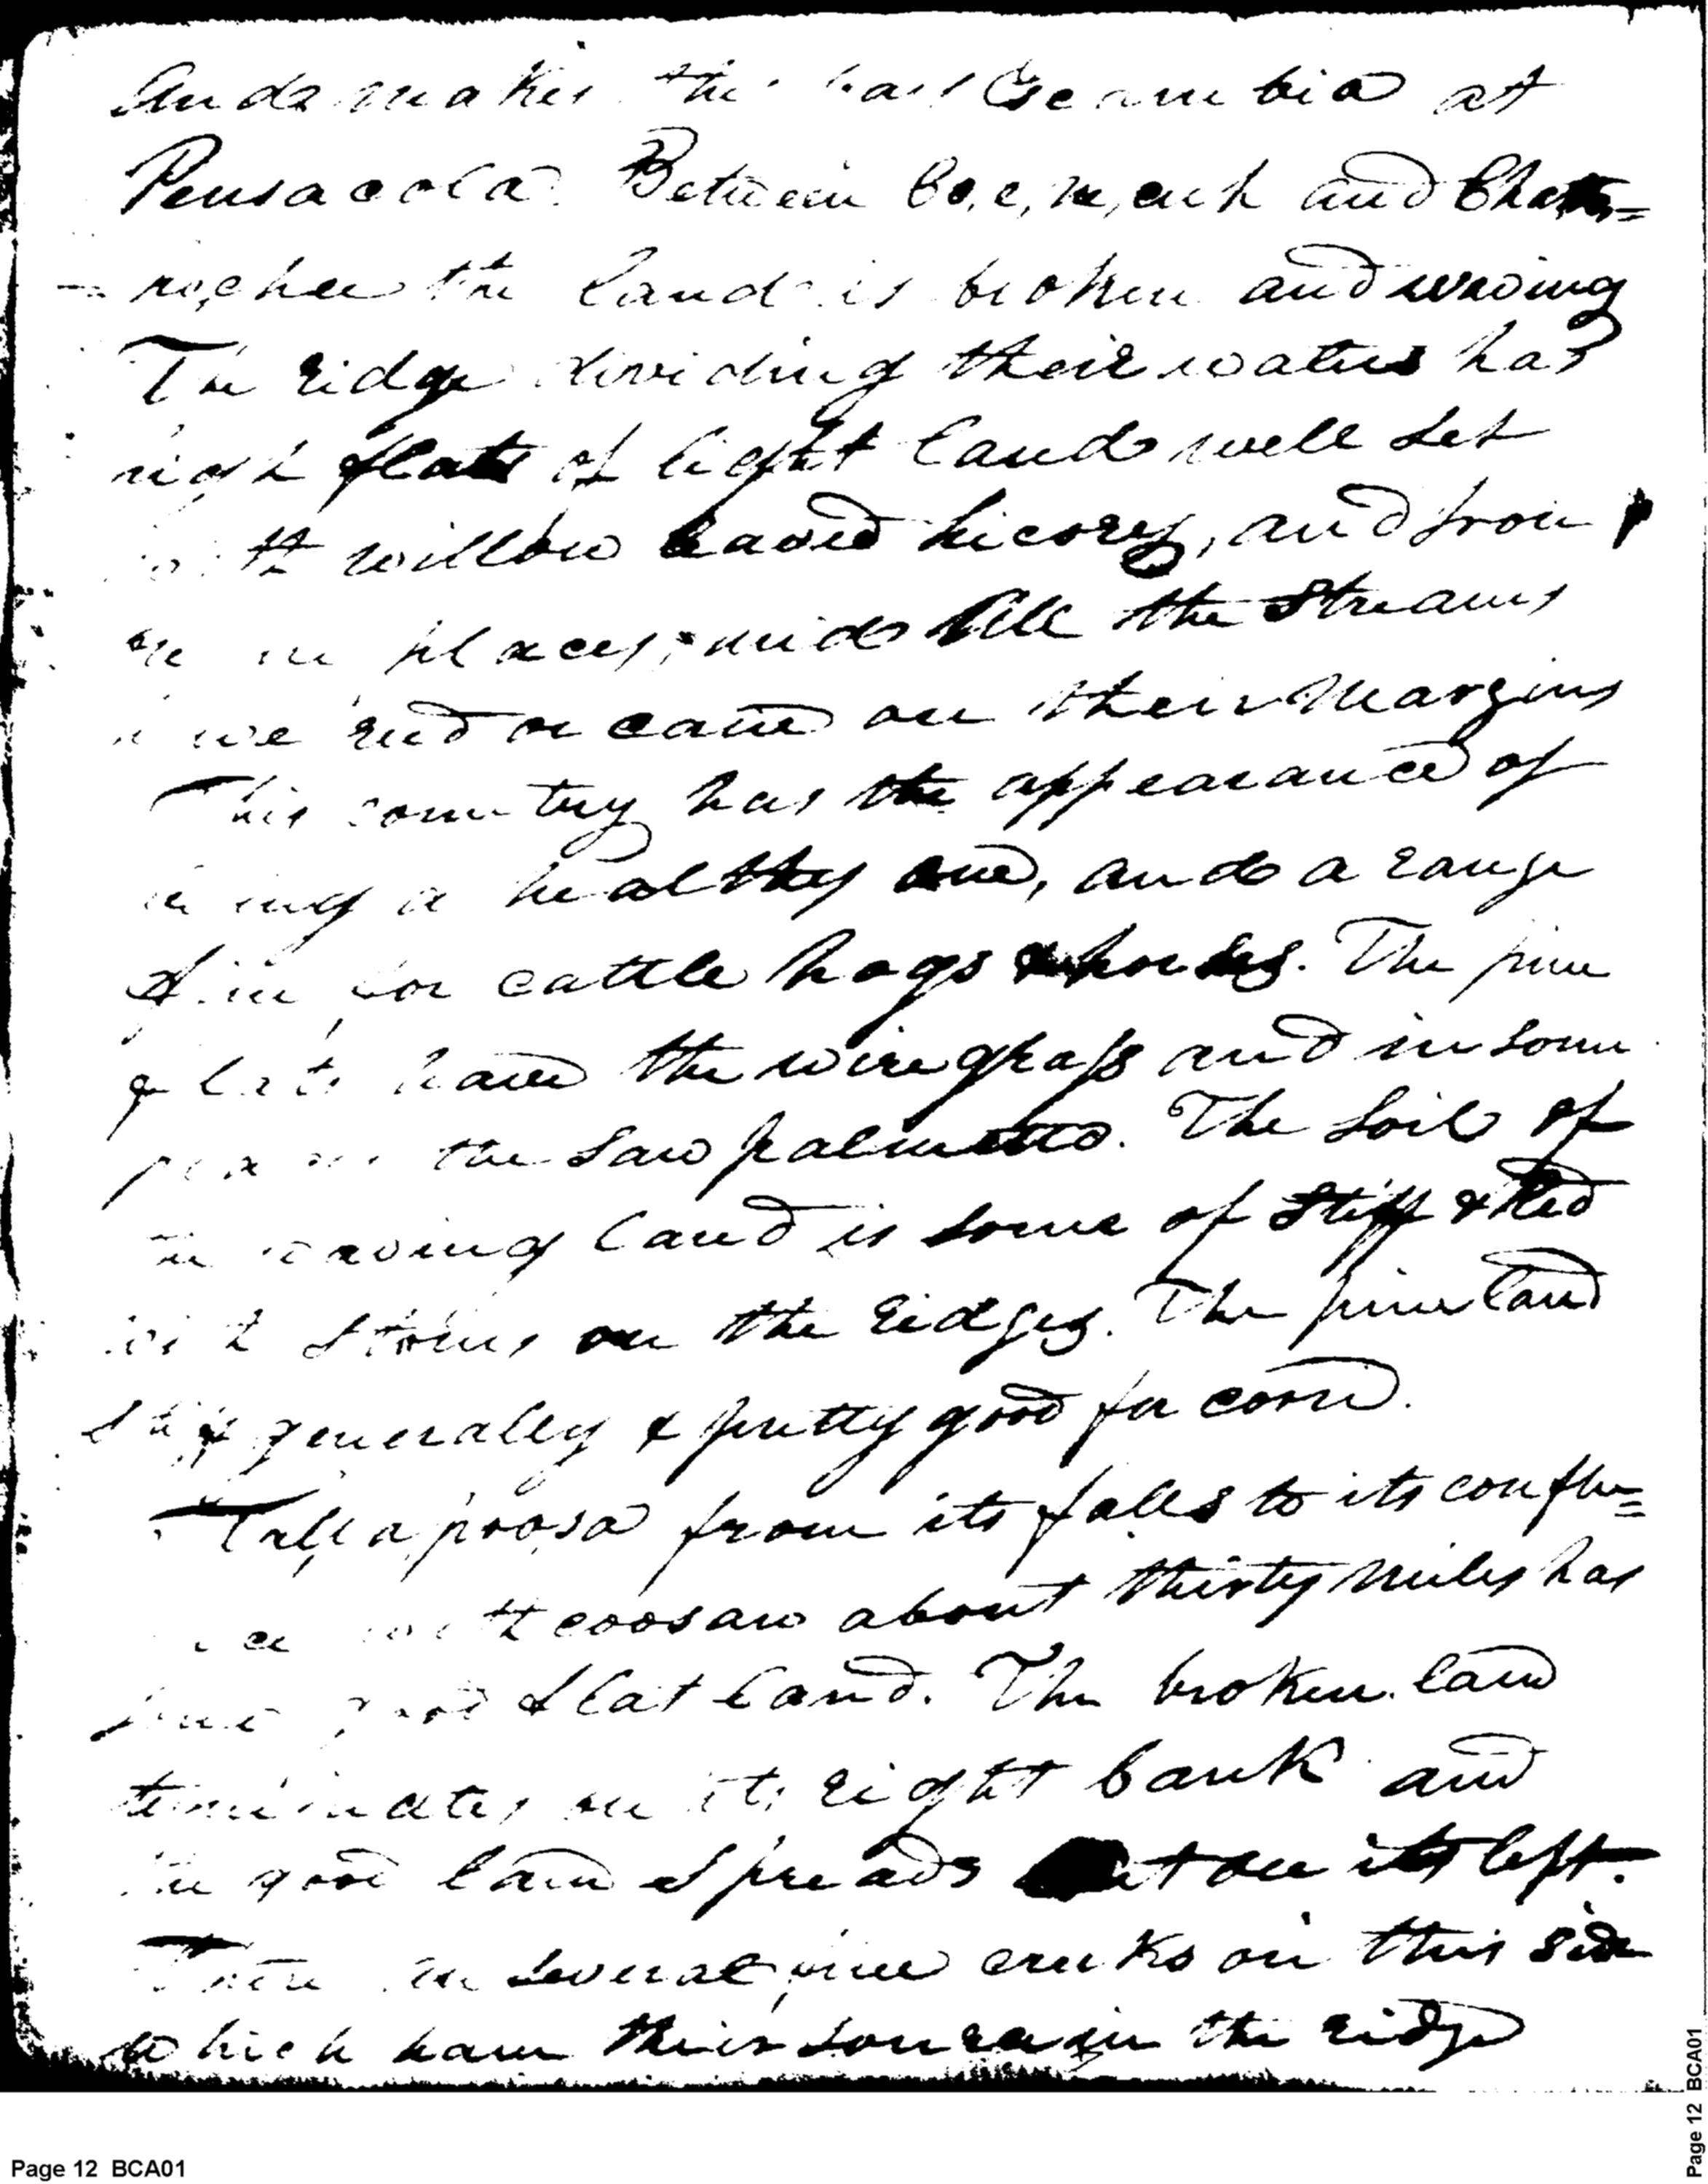 and makes the bay Escambia at
Pensacola. Between Co,e,ne,cuh and Chatto=
=ho,chee the land is broken and waving
The ridge dividing their waters has
high flats of light land well set
with willow leaved hicory, and iron
ore in places, and all the streams
have reed or cane on their margins
This country has the appearance of
being a healthy one, and a range
fine for cattle hogs & horses. The pine
flats have the wire grass and in some
places the saw palmetto. The soil of
the waving land is some of stiff & red
with stones on the ridges. The pine land
stiff generally & pretty good for corn.
Tall,a,poosa from its falls to its conflu=
nce with coosaw about thirty miles has
some good flat land. The broken land
terminates on its right bank and
the good land spreads out on its left.
There are several pine creeks on this side
which have their source in the ridge
Page 12 BCA01
Page 12 BCA01